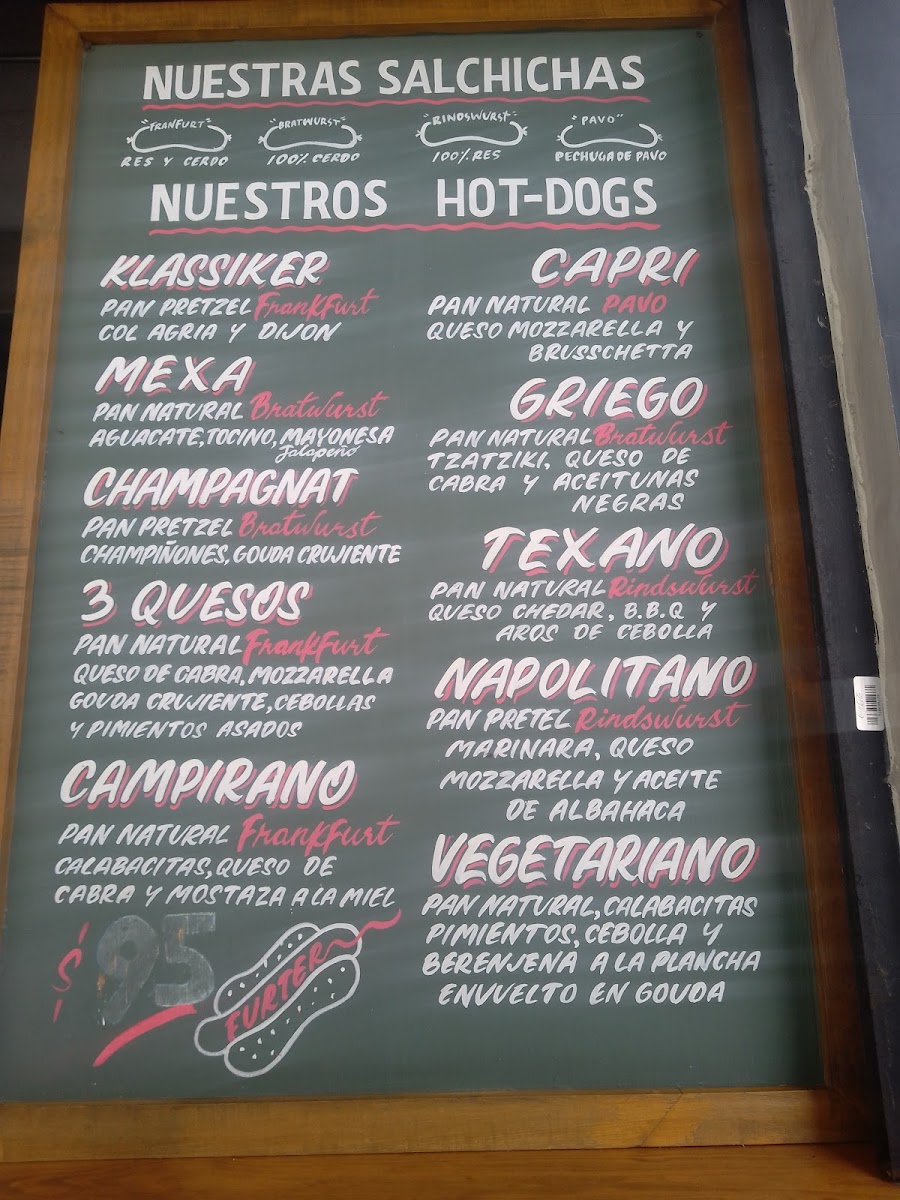 NUESTRAS SALCHICHAS
"FRANFURT" "BRATWURST" "RINDSWURST" "PAVO"
RES Y CERDO 100% CERDO 100% RES PECHUGA DE PAVO
NUESTROS HOT-DOGS
KLASSIKER
PAN PRETZEL Frankfurt
COL AGRIA Y DIJON
MEXA
PAN NATURAL Bratwurst
AGUACATE, TOCINO, MAYONESA
Jalapeño
CHAMPAGNAT
PAN PRETZEL Bratwurst
CHAMPIÑONES, GOUDA CRUJIENTE
3 QUESOS
PAN NATURAL Frankfurt
QUESO DE CABRA, MOZZARELLA
GOUDA CRUJIENTE, CEBOLLAS
Y PIMIENTOS ASADOS
CAMPIRANO
PAN NATURAL Frankfurt
CALABACITAS, QUESO DE
CABRA Y MOSTAZA A LA MIEL
$95
FURTER
CAPRI
PAN NATURAL PAVO
QUESO MOZZARELLA Y
BRUSSCHETTA
GRIEGO
PAN NATURAL Bratwurst
TZATZIKI, QUESO DE
CABRA Y ACEITUNAS
NEGRAS
TEXANO
PAN NATURAL Rindswurst
QUESO CHEDAR, B.B.Q Y
AROS DE CEBOLLA
NAPOLITANO
PAN PRETEL Rindswurst
MARINARA, QUESO
MOZZARELLA Y ACEITE
DE ALBAHACA
VEGETARIANO
PAN NATURAL, CALABACITAS
PIMIENTOS, CEBOLLA Y
BERENJENA A LA PLANCHA
ENVUELTO EN GOUDA